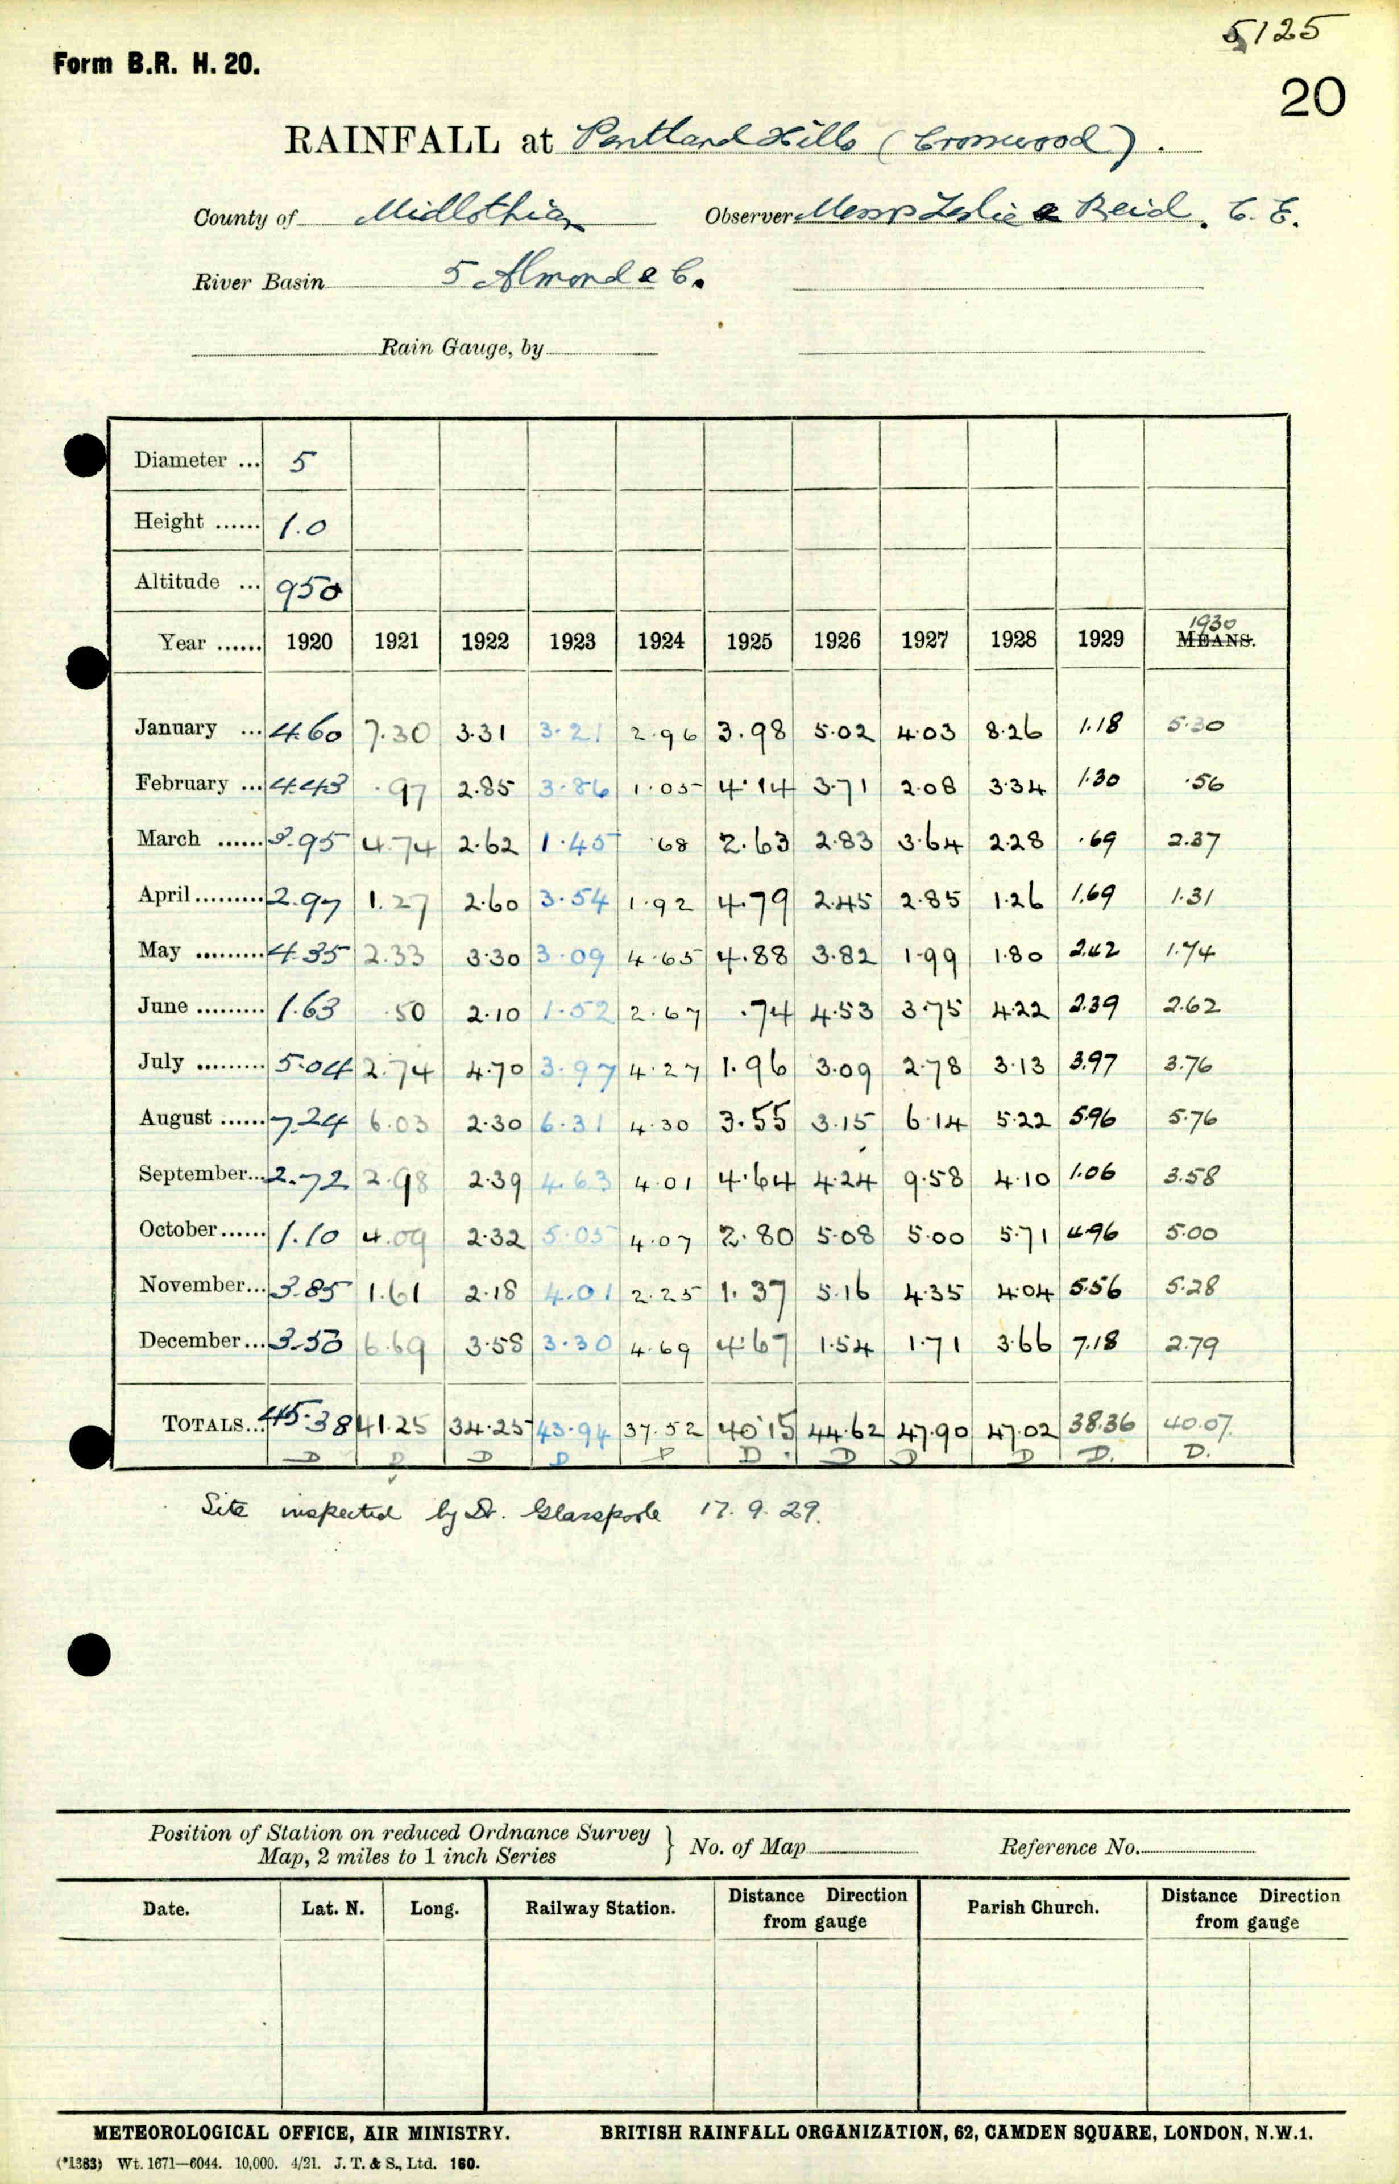 5125
Form B.R. H. 20.
20
RAINFALL at Pentland Hills (Crosswood).
County of Midlothian Observer Messrs Leslie & Reid, C. E.
River Basin 5 Almond &c.
Rain Gauge, by
Diameter ... 5
Height ...... 1.0
Altitude ... 950
1930
Year ...... 1920 1921 1922 1923 1924 1925 1926 1927 1928 1929 MEANS.
January ... 4.60 7.30 3.31 3.21 2.96 3.98 5.02 4.03 8.26 1.18 5.30
February ... 4.43 .97 2.85 3.86 1.05 4.14 3.71 2.08 3.34 1.30 .56
March ...... 3.95 4.74 2.62 1.45 .68 2.63 2.83 3.64 2.28 .69 2.37
April......... 2.97 1.27 2.60 3.54 1.92 4.79 2.45 2.85 1.26 1.69 1.31
May ......... 4.35 2.33 3.30 3.09 4.65 4.88 3.82 1.99 1.80 2.42 1.74
June ......... 1.63 .50 2.10 1.52 2.67 .74 4.53 3.75 4.22 2.39 2.62
July ......... 5.04 2.74 4.70 3.97 4.27 1.96 3.09 2.78 3.13 3.97 3.76
August ...... 7.24 6.03 2.30 6.31 4.30 3.55 3.15 6.14 5.22 5.96 5.76
September... 2.72 2.98 2.39 4.63 4.01 4.64 4.24 9.58 4.10 1.06 3.58
October...... 1.10 4.09 2.32 5.05 4.07 2.80 5.08 5.00 5.71 4.96 5.00
November... 3.85 1.61 2.18 4.01 2.25 1.37 5.16 4.35 4.04 5.56 5.28
December... 3.50 6.69 3.58 3.30 4.69 4.67 1.54 1.71 3.66 7.18 2.79
TOTALS... 45.38 41.25 34.25 43.94 37.52 40.15 44.62 47.90 47.02 38.36 40.07
D D D D D D D D D D. D.
Site inspected by Dr. Glasspoole 17.9.29.
Position of Station on reduced Ordnance Survey
Map, 2 miles to 1 inch Series } No. of Map Reference No.
Date. Lat. N. Long. Railway Station. Distance Direction from gauge Parish Church. Distance Direction from gauge
METEOROLOGICAL OFFICE, AIR MINISTRY. BRITISH RAINFALL ORGANIZATION, 62, CAMDEN SQUARE, LONDON, N.W.1.
(*1383) Wt. 1671—6044. 10,000. 4/21. J. T. & S., Ltd. 160.